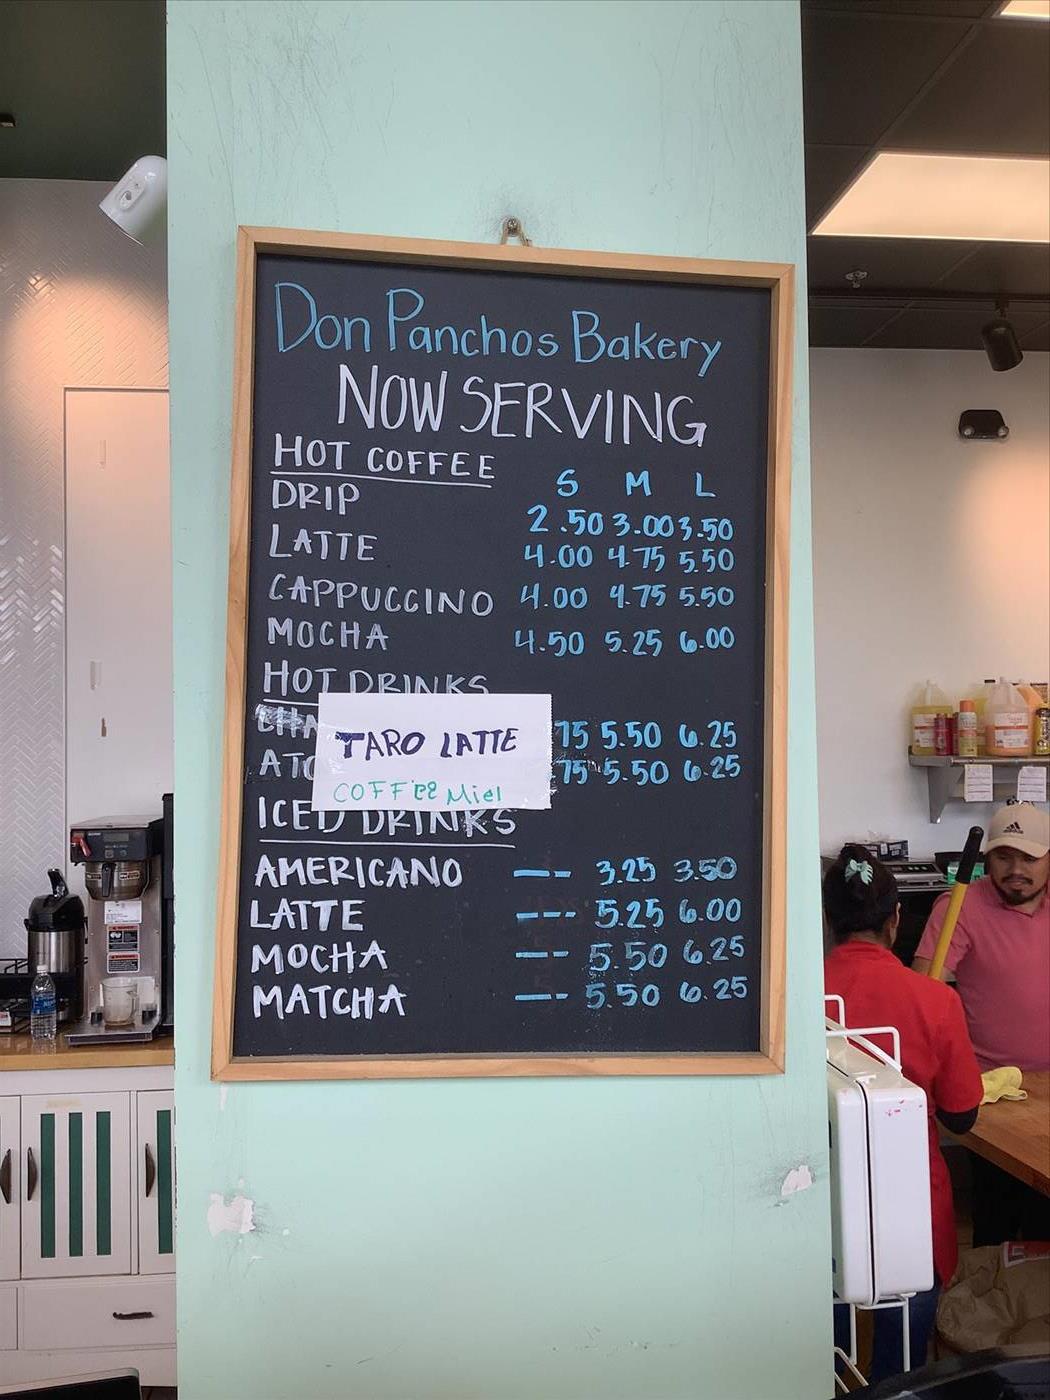 Don Panchos Bakery
NOW SERVING
HOT COFFEE
S M L
DRIP 2.50 3.00 3.50
LATTE 4.00 4.75 5.50
CAPPUCCINO 4.00 4.75 5.50
MOCHA 4.50 5.25 6.00
HOT DRINKS
CHA 75 5.50 6.25
TARO LATTE
ATO 75 5.50 6.25
COFFEE Miel
ICED DRINKS
AMERICANO --- 3.25 3.50
LATTE --- 5.25 6.00
MOCHA --- 5.50 6.25
MATCHA --- 5.50 6.25
adidas